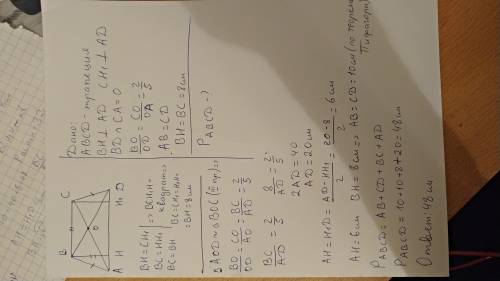 Дано:
ABCD - трапеция
BH⊥AD CH₁⊥AD
BD∩CA=O
BO/OD = CO/OA = 2/5
AB=CD
BH=BC=8см
P_ABCD - ?
B C
O
A H H₁ D
BH=CH₁
BC=HH₁
BC=BH
=> BCH₁H - квадрат =>
BC=CH₁=HH₁=
=BH=8см
△AOD~△BOC
BO/OD = CO/AO = BC/AD = 2/5
BC/AD = 2/5 8/AD = 2/5
2AD=40
AD=20см
AH=H₁D = (AD-HH₁)/2 = (20-8)/2 = 6см
AH=6см BH=8см => AB=CD=10см (по теореме
Пифагора)
P_ABCD = AB+CD+BC+AD
P_ABCD = 10+10+8+20=48см
Ответ: 48см